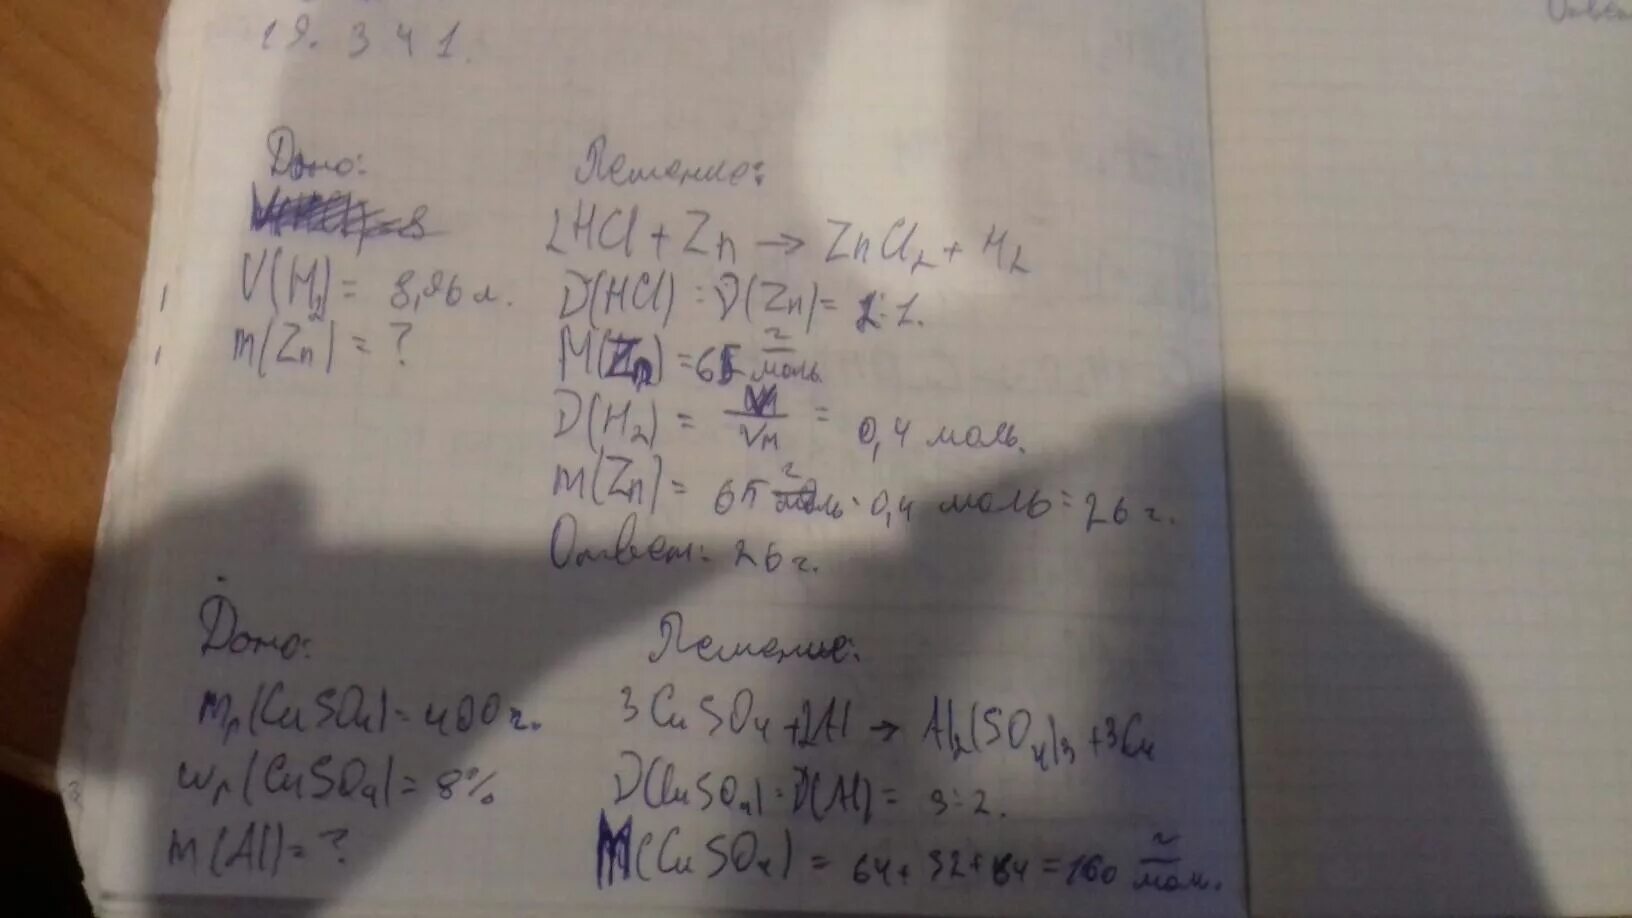 19. 3 4 1.
Дано:
V(H2) = 8,96 л.
m(Zn) = ?
Решение:
2HCl + Zn → ZnCl2 + H2
D(HCl) : D(Zn) = 2:1.
M(Zn) = 65 г/моль
D(H2) = V/Vм = 0,4 моль.
m(Zn) = 65 г/моль · 0,4 моль = 26 г.
Ответ: 26 г.
Дано:
mр(CuSO4) = 400 г.
wр(CuSO4) = 8%
m(Al) = ?
Решение:
3CuSO4 + 2Al → Al2(SO4)3 + 3Cu
D(CuSO4) : D(Al) = 3:2.
M(CuSO4) = 64 + 32 + 64 = 160 г/мол.